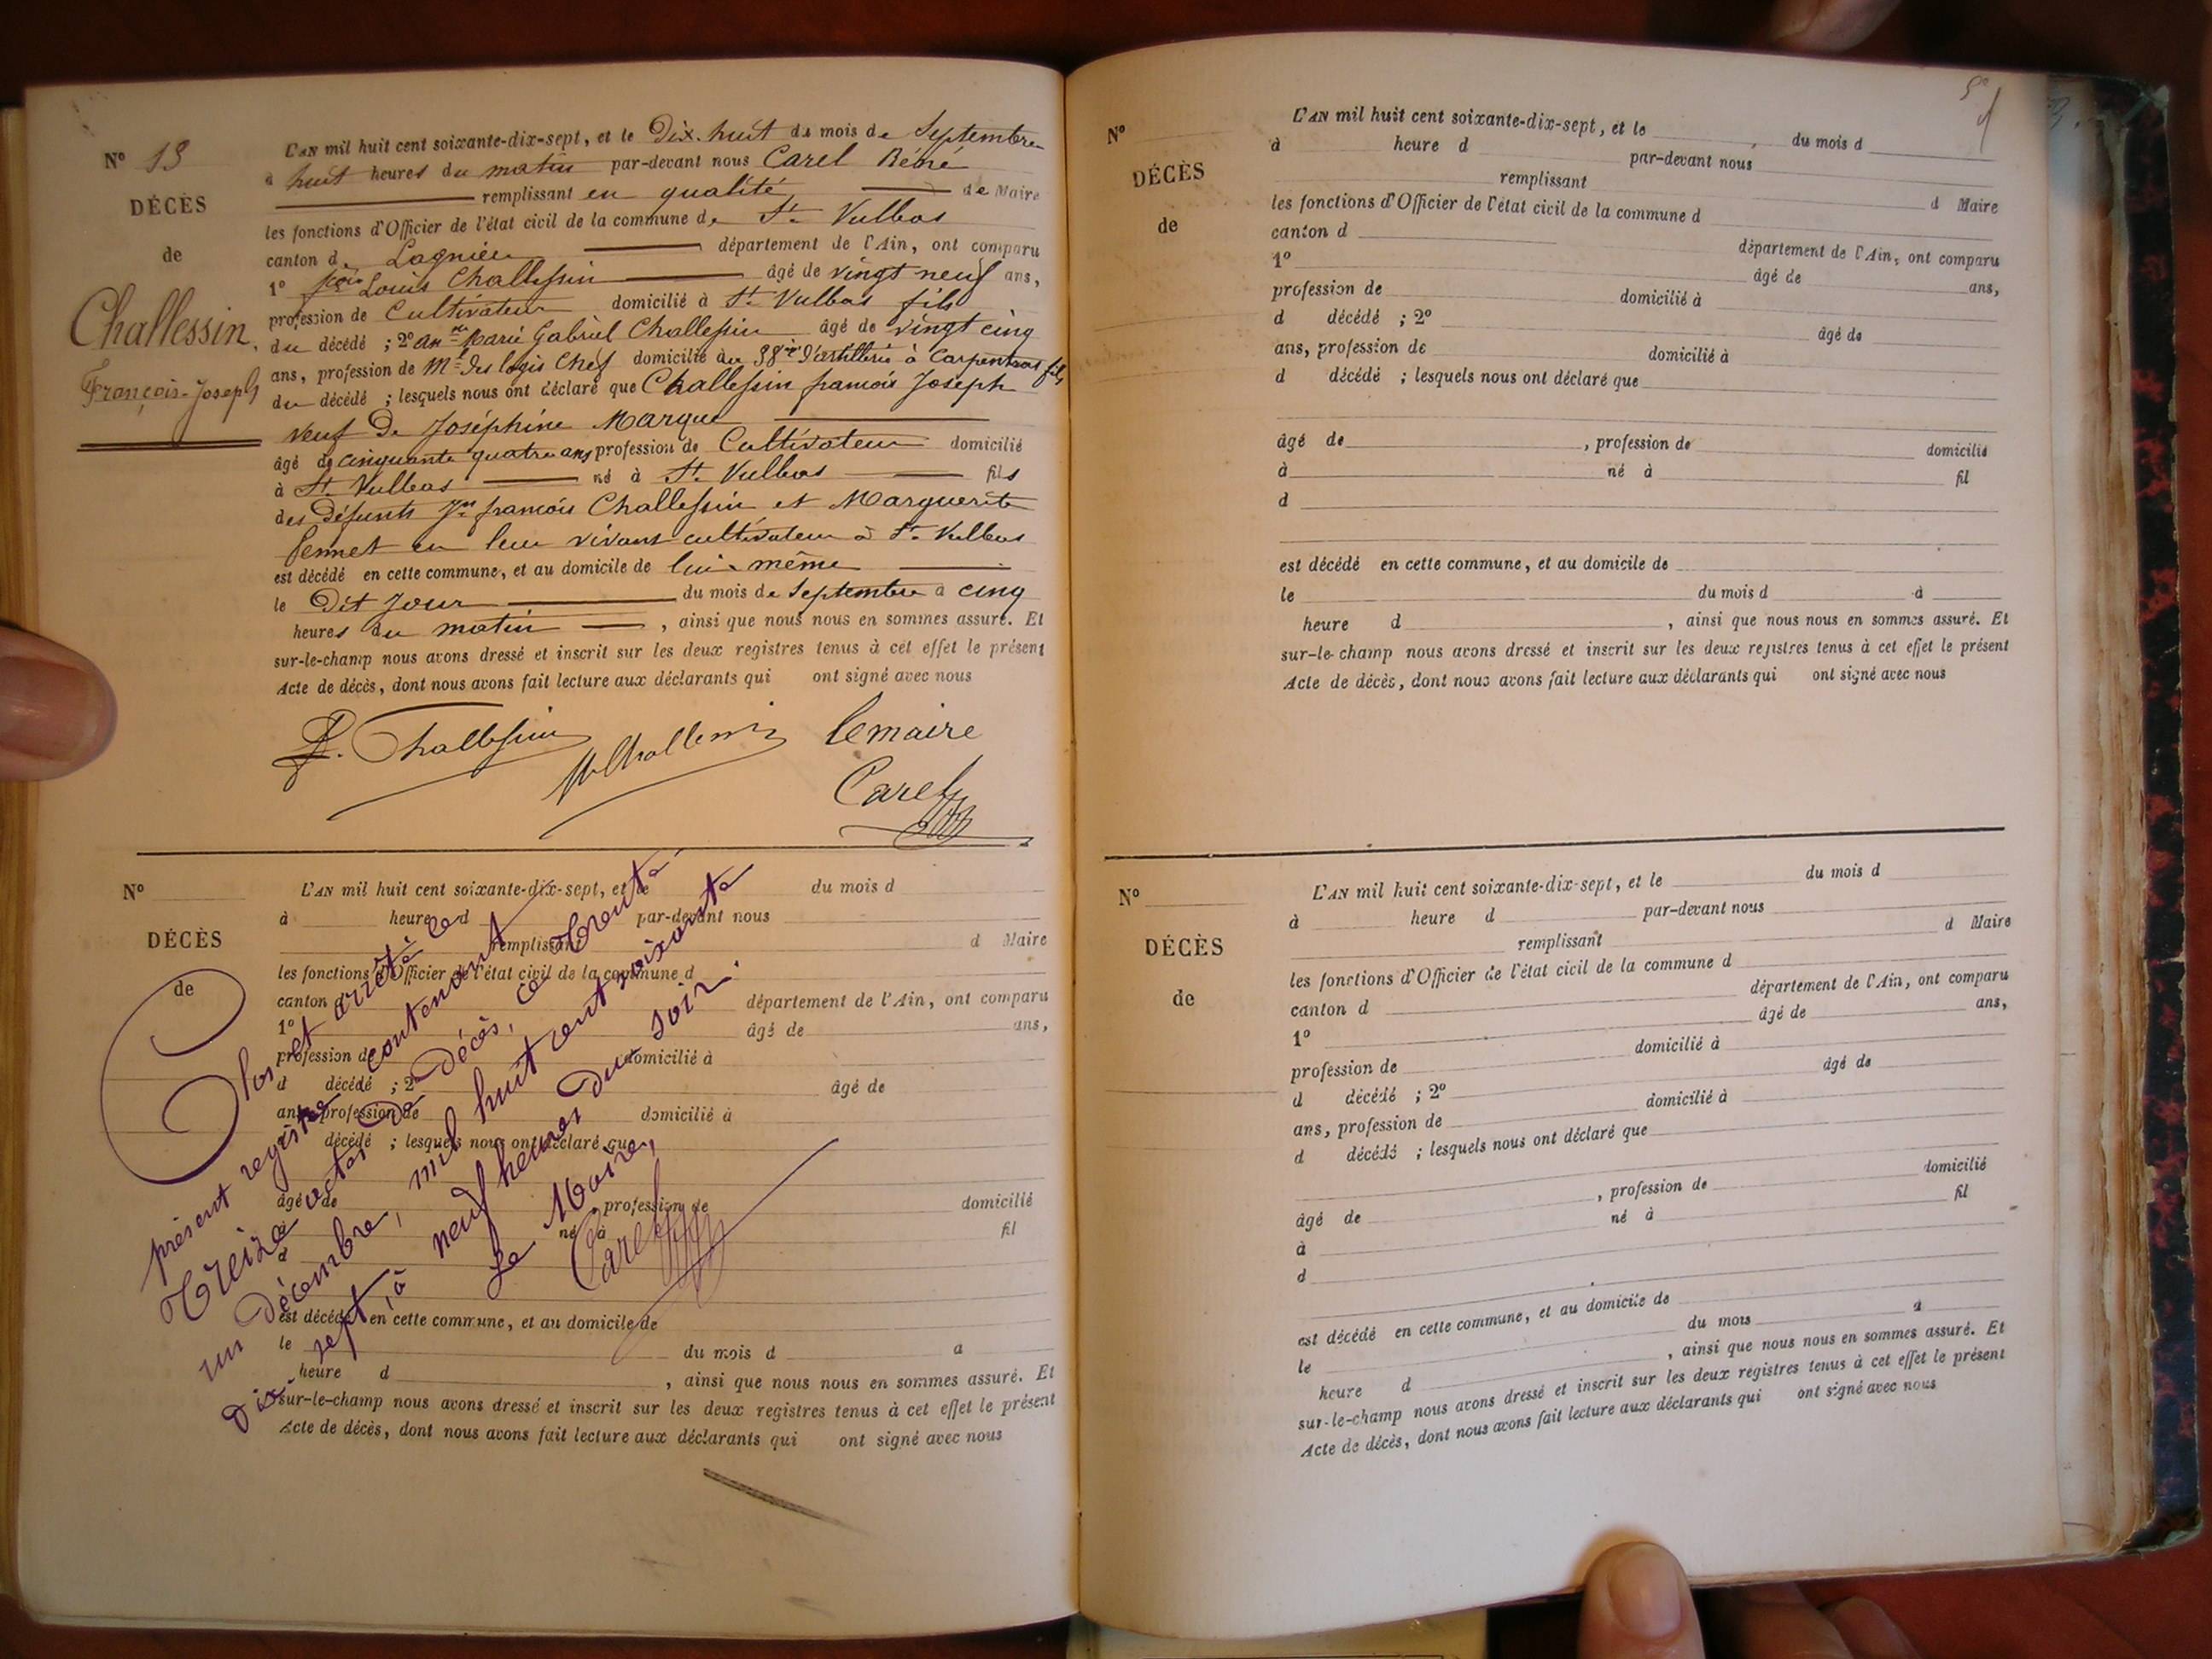 Nº 13
DÉCÈS
de
Challessin,
François-Joseph
L'AN mil huit cent soixante-dix-sept, et le Dix-huit du mois de Septembre
à huit heures du matin par-devant nous Carel Réné
remplissant en qualité de Maire
les fonctions d'Officier de l'état civil de la commune de St. Vulbas
canton de Lagnieu département de l'Ain, ont comparu
1º Louis Challessin âgé de vingt neuf ans,
profession de Cultivateur domicilié à St. Vulbas fils
du décédé ; 2º Marie Gabriel Challessin âgé de vingt cinq
ans, profession de Mal des logis Chef domicilié au 38e d'artillerie à Carpentras fils
du décédé ; lesquels nous ont déclaré que Challessin francois Joseph
veuf De Joséphine Marque
âgé de cinquante quatre ans profession de Cultivateur domicilié
à St. Vulbas né à St. Vulbas fils
des Défunts Jn francois Challessin et Marguerite
fennet en leur vivant cultivateur à St. Vulbas
est décédé en cette commune, et au domicile de lui-même
le Dit Jour du mois de Septembre à cinq
heures du matin , ainsi que nous nous en sommes assuré. Et
sur-le-champ nous avons dressé et inscrit sur les deux registres tenus à cet effet le présent
Acte de décès, dont nous avons fait lecture aux déclarants qui ont signé avec nous
L. Challessin
Challessin
Lemaire
Carel
Nº
DÉCÈS
de
L'AN mil huit cent soixante-dix-sept, et le du mois d
à heure d par-devant nous
remplissant d Maire
les fonctions d'Officier de l'état civil de la commune d
canton d département de l'Ain, ont comparu
1º âgé de ans,
profession de domicilié à
d décédé ; 2º âgé de
ans, profession de domicilié à
d décédé ; lesquels nous ont déclaré que
âgé de , profession de domicilié
à né à fil
d
est décédé en cette commune, et au domicile de
le du mois d à
heure d , ainsi que nous nous en sommes assuré. Et
sur-le-champ nous avons dressé et inscrit sur les deux registres tenus à cet effet le présent
Acte de décès, dont nous avons fait lecture aux déclarants qui ont signé avec nous
Clos et arrêté le
présent registre contenant
Treize actes de Décès, ce trente
un Décembre, mil huit cent soixante
dix-sept, à neuf heures du soir.
Le Maire,
Carel
Nº
DÉCÈS
de
L'AN mil huit cent soixante-dix-sept, et le , du mois d
à heure d par-devant nous
remplissant d Maire
les fonctions d'Officier de l'état civil de la commune d
canton d département de l'Ain, ont comparu
1º âgé de ans,
profession de domicilié à
d décédé ; 2º âgé de
ans, profession de domicilié à
d décédé ; lesquels nous ont déclaré que
âgé de , profession de domicilié
à né à fil
d
est décédé en cette commune, et au domicile de
le du mois d à
heure d , ainsi que nous nous en sommes assuré. Et
sur-le-champ nous avons dressé et inscrit sur les deux registres tenus à cet effet le présent
Acte de décès, dont nous avons fait lecture aux déclarants qui ont signé avec nous
Nº
DÉCÈS
de
L'AN mil huit cent soixante-dix-sept, et le du mois d
à heure d par-devant nous
remplissant d Maire
les fonctions d'Officier de l'état civil de la commune d
canton d département de l'Ain, ont comparu
1º âgé de ans,
profession de domicilié à
d décédé ; 2º âgé de
ans, profession de domicilié à
d décédé ; lesquels nous ont déclaré que
âgé de , profession de domicilié
à né à fil
d
est décédé en cette commune, et au domicile de
le du mois à
heure d , ainsi que nous nous en sommes assuré. Et
sur-le-champ nous avons dressé et inscrit sur les deux registres tenus à cet effet le présent
Acte de décès, dont nous avons fait lecture aux déclarants qui ont signé avec nous